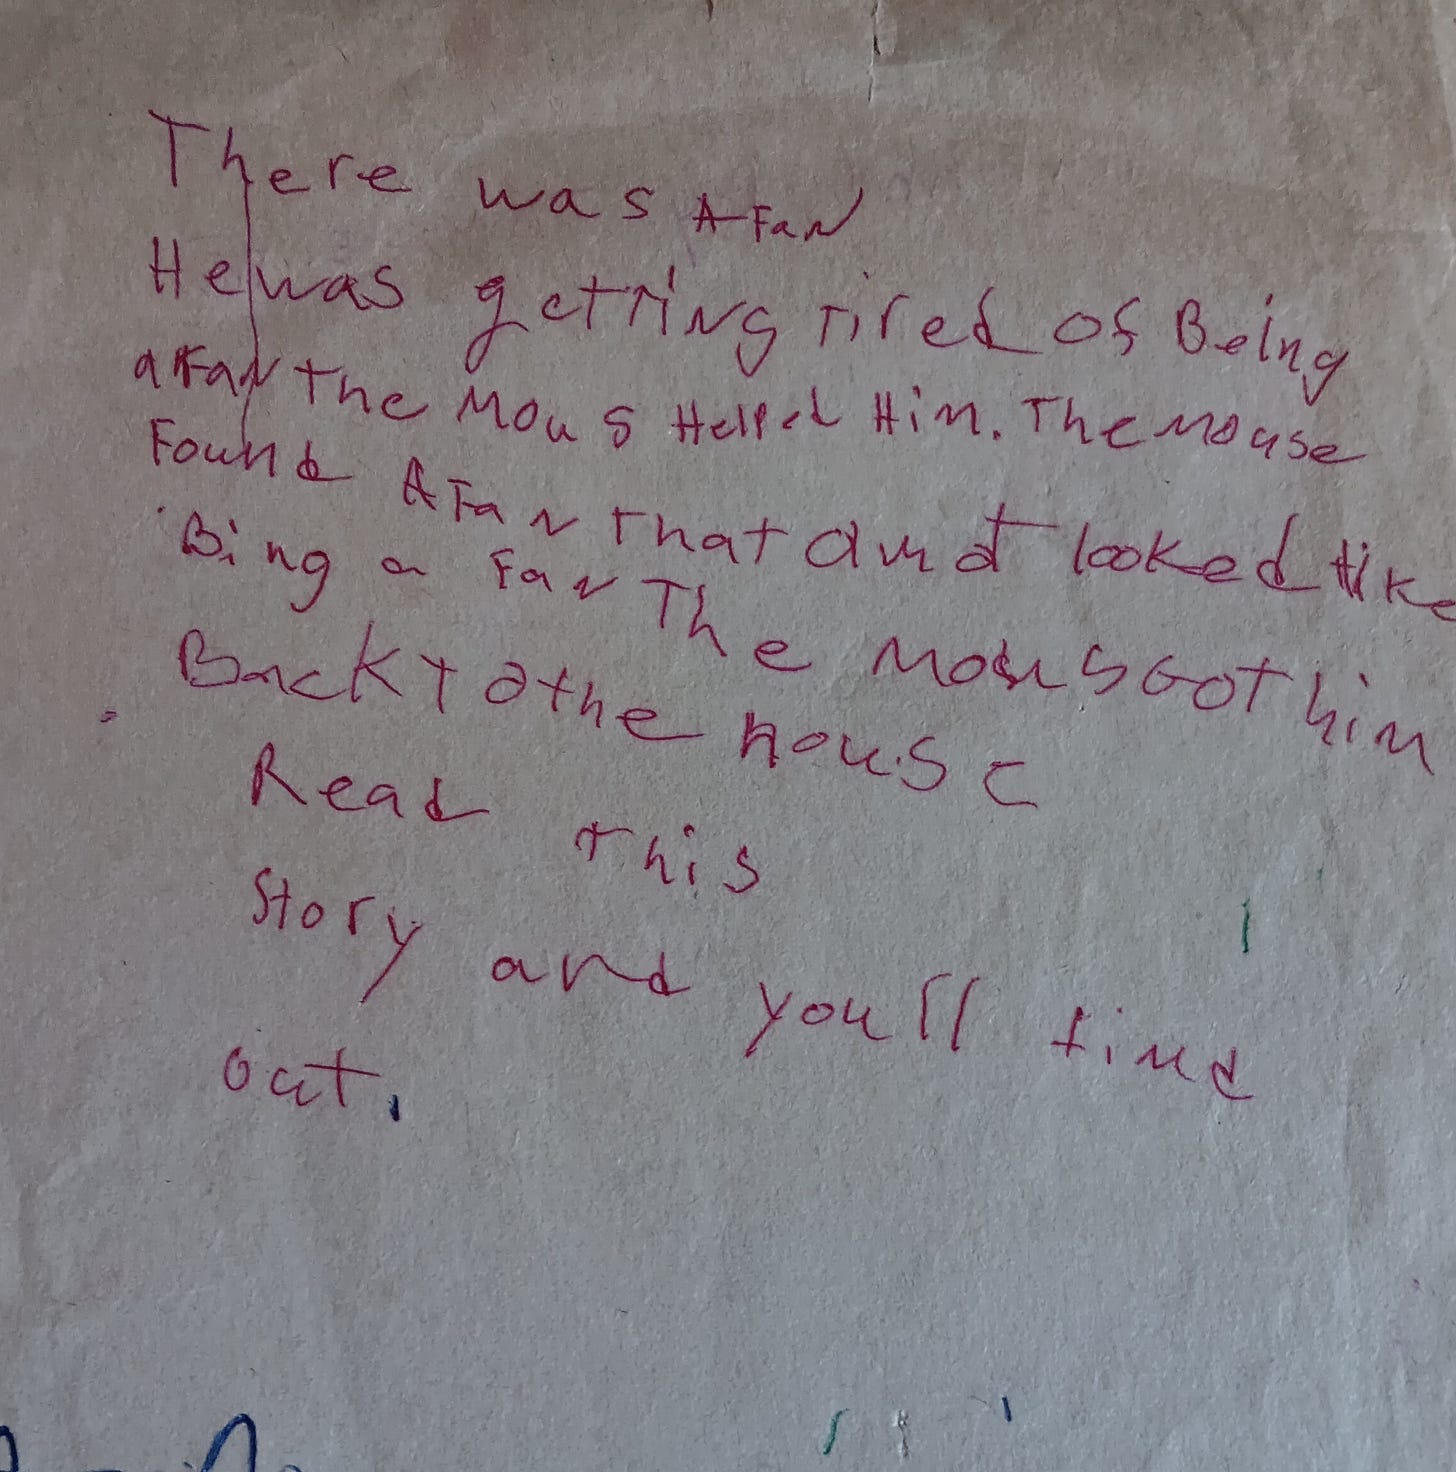 There was A Fan
He was getting tired of Being
a Fan the Mous Helped Him. The mouse
Found A Fan that dunt looked like
Bing a Fan The mous Got him
Back to the house
Read this
Story and you'll find
out.